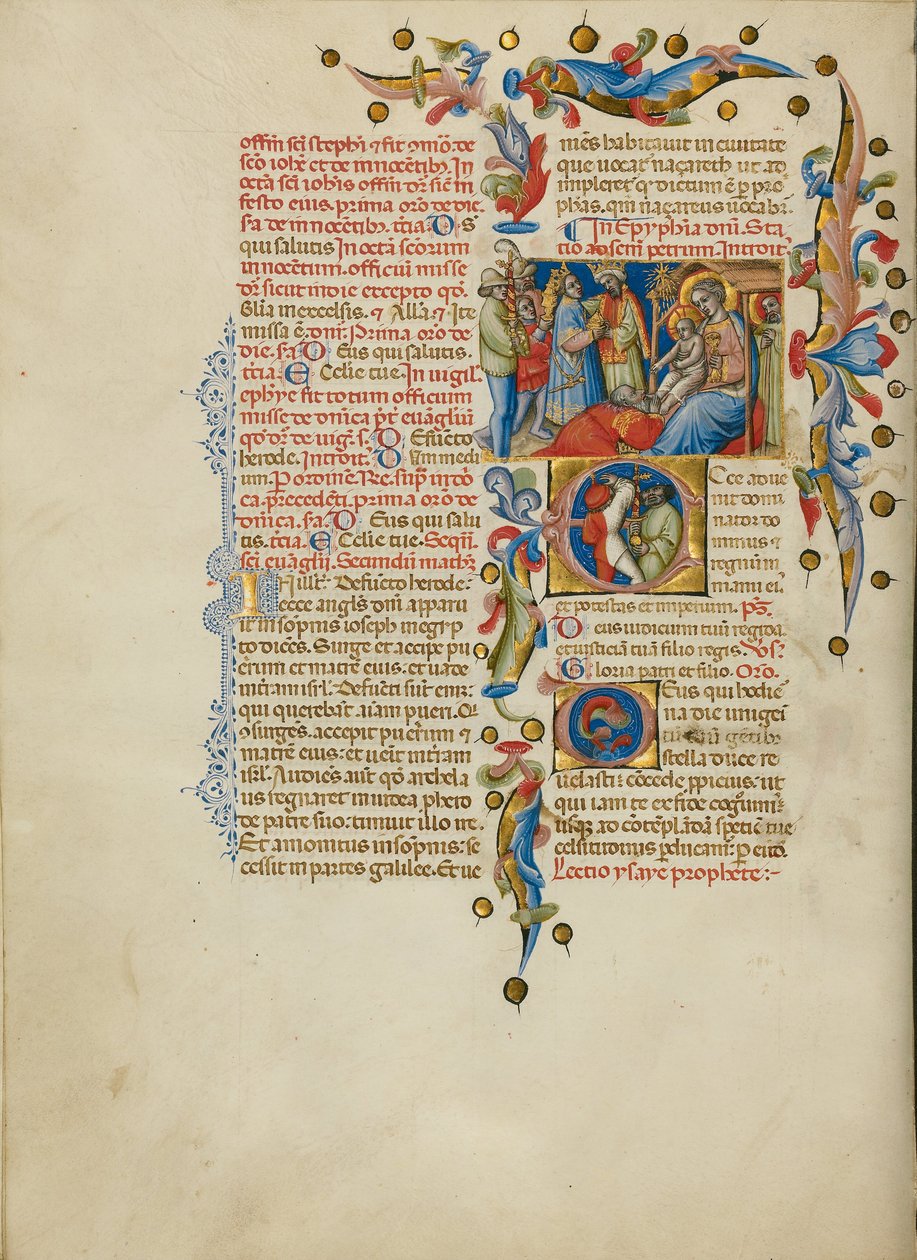 offm̄ sc̄i stephī ⁊ fit ꝯmō. de
sc̄o ioh̄e et de innocētib᷒. In
octā sc̄i ioh̄is offm̄ dr̄ sic̄ in
festo eius. prima orō de die.
sa de innocētib᷒. t̄cia. D̄s
qui salutis In octā sc̄orum
innocētum. officiū misse
dr̄ sicut in die excepto qō.
Glīa in excelsis. ⁊ All'a. ⁊ Ite
missa ē. dnī. Prima orō de
die. sa. Deus qui salutis.
t̄cia. Ecclīe tue. In uigil'
ephȳe fit totum officium
misse de dn̄ica p̄t euāgliū
qō dr̄ de uig'. s. Defūcto
herode. Introit. Dum medi
um. P ordinē. Re. sup̄ in dō
ca. p̄recedēti. prima orō de
dōnica. sa. Deus qui salu
tis. t̄cia. Ecclīe tue. Sequīt̄
sc̄i euāglii. Secundū math̄.
In illī t. Defūcto herode:
ecce angl̄s dn̄i apparu
it in sōpnis ioseph in egip
to dicēs. Surge et accipe pu
erum et matrē eius. et uade
in t̄ram isrl̄. Defūcti sūt eni᷒:
qui querebāt aīam pueri. Q̄
ꝯsurgēs. accepit puerum ⁊
matrē eius: et uēit in t̄ram
isrl̄. Audiēs aūt qō archela
us regnaret in iudea p̄ hero
de patre suo: timuit illo ire.
Et amonitus in sōpnis: se
cessit in partes galilee. Et ue
niēs habitauit in ciuitate
que uocat᷒ naçareth ut ad
impleret᷒ qd̄ dictum ē p̄ pro
phās. qm̄ naçareus uocabit᷒.
In Epyphīa dnī. Sta
tio ad scm̄ petrum. Introit᷒
Ecce adue
nit domi
nator do
minus ⁊
regnum in
manu ei᷒.
et potestas et imperium. p̄s.
Deus iudicium tuū regi da.
et iusticiā tuā filio regis. Vs.
Gloria patri et filio. Orō.
Deus qui hodier
na die unigeī
tuū gētib᷒
stella duce re
uelasti: cōcede p̄picius. ut
qui iam te ex fide cognoūi᷒:
usq ad cōtēplādā spetiē tue
celsitudinis p̄ducam᷒. P̄ eūd.
Lectio ysaye prophete:-